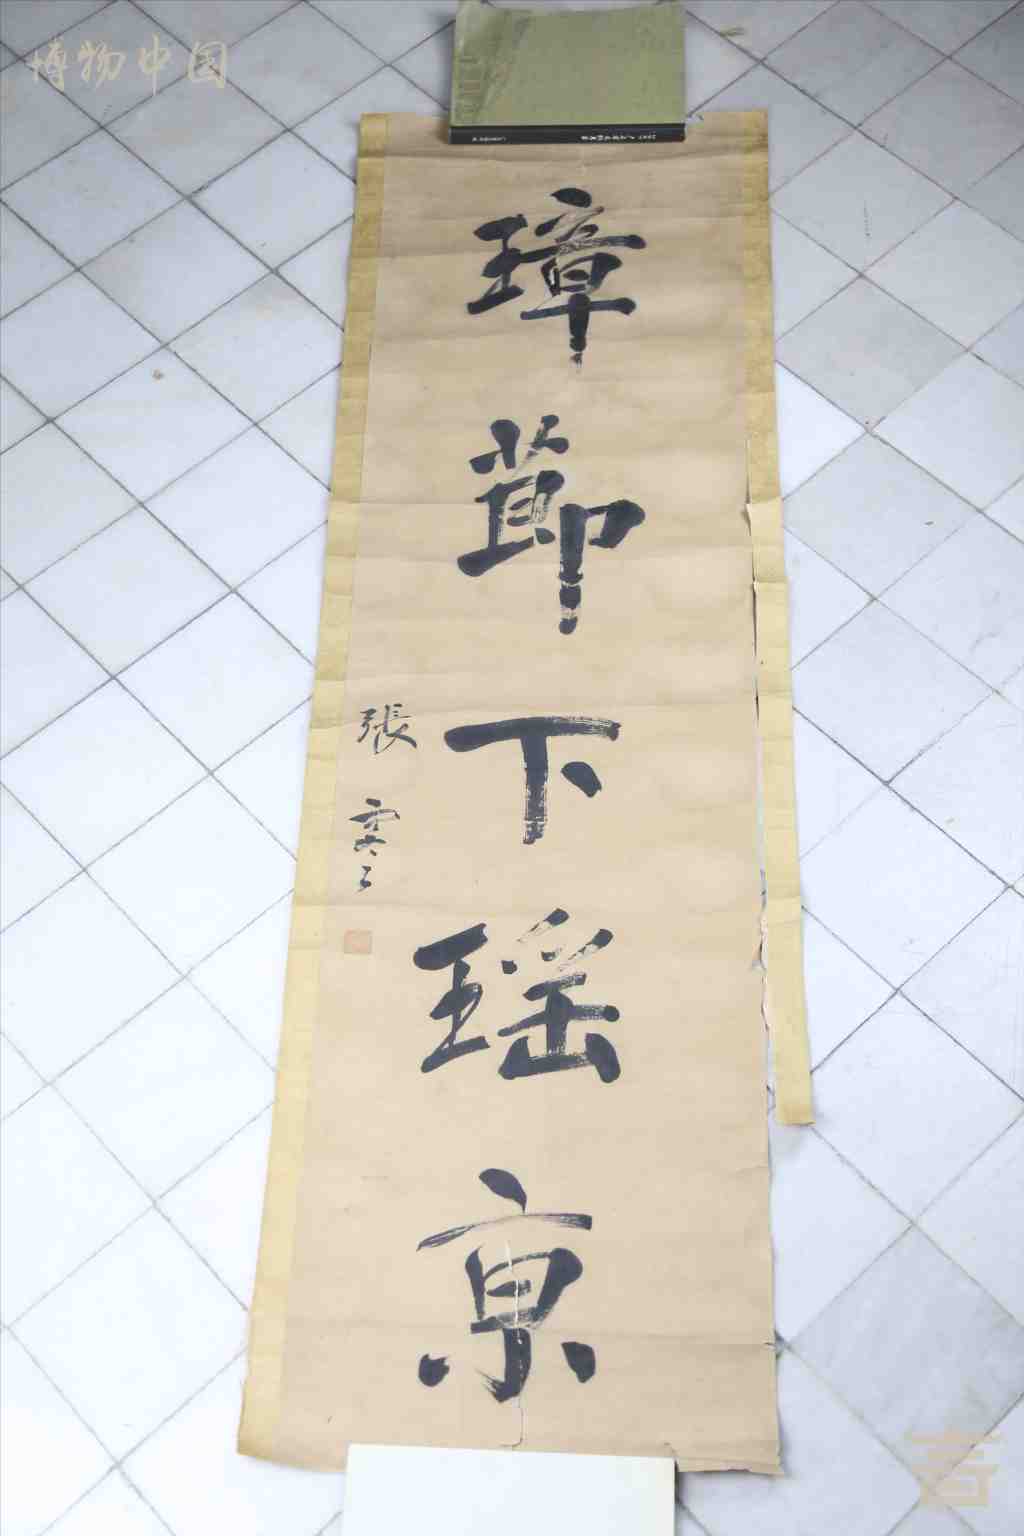 博物中国
璋節下瑶京
張